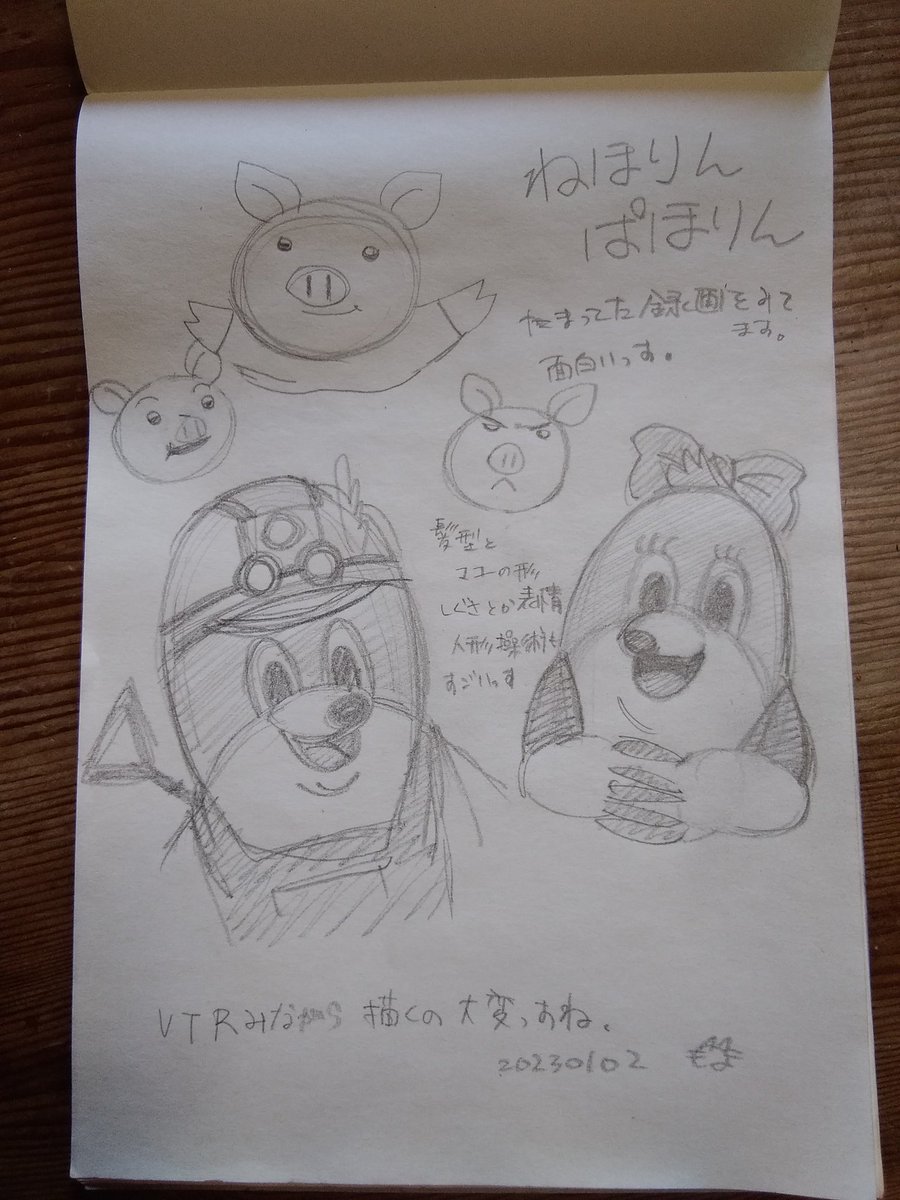 ねほりん
ぱほりん
たまってた録画をみて
ます。
面白いっす。
髪型と
マユーの形
しぐさとか表情
人形操術も
すごいっす
VTRみながら描くの大変っすね。
20230102